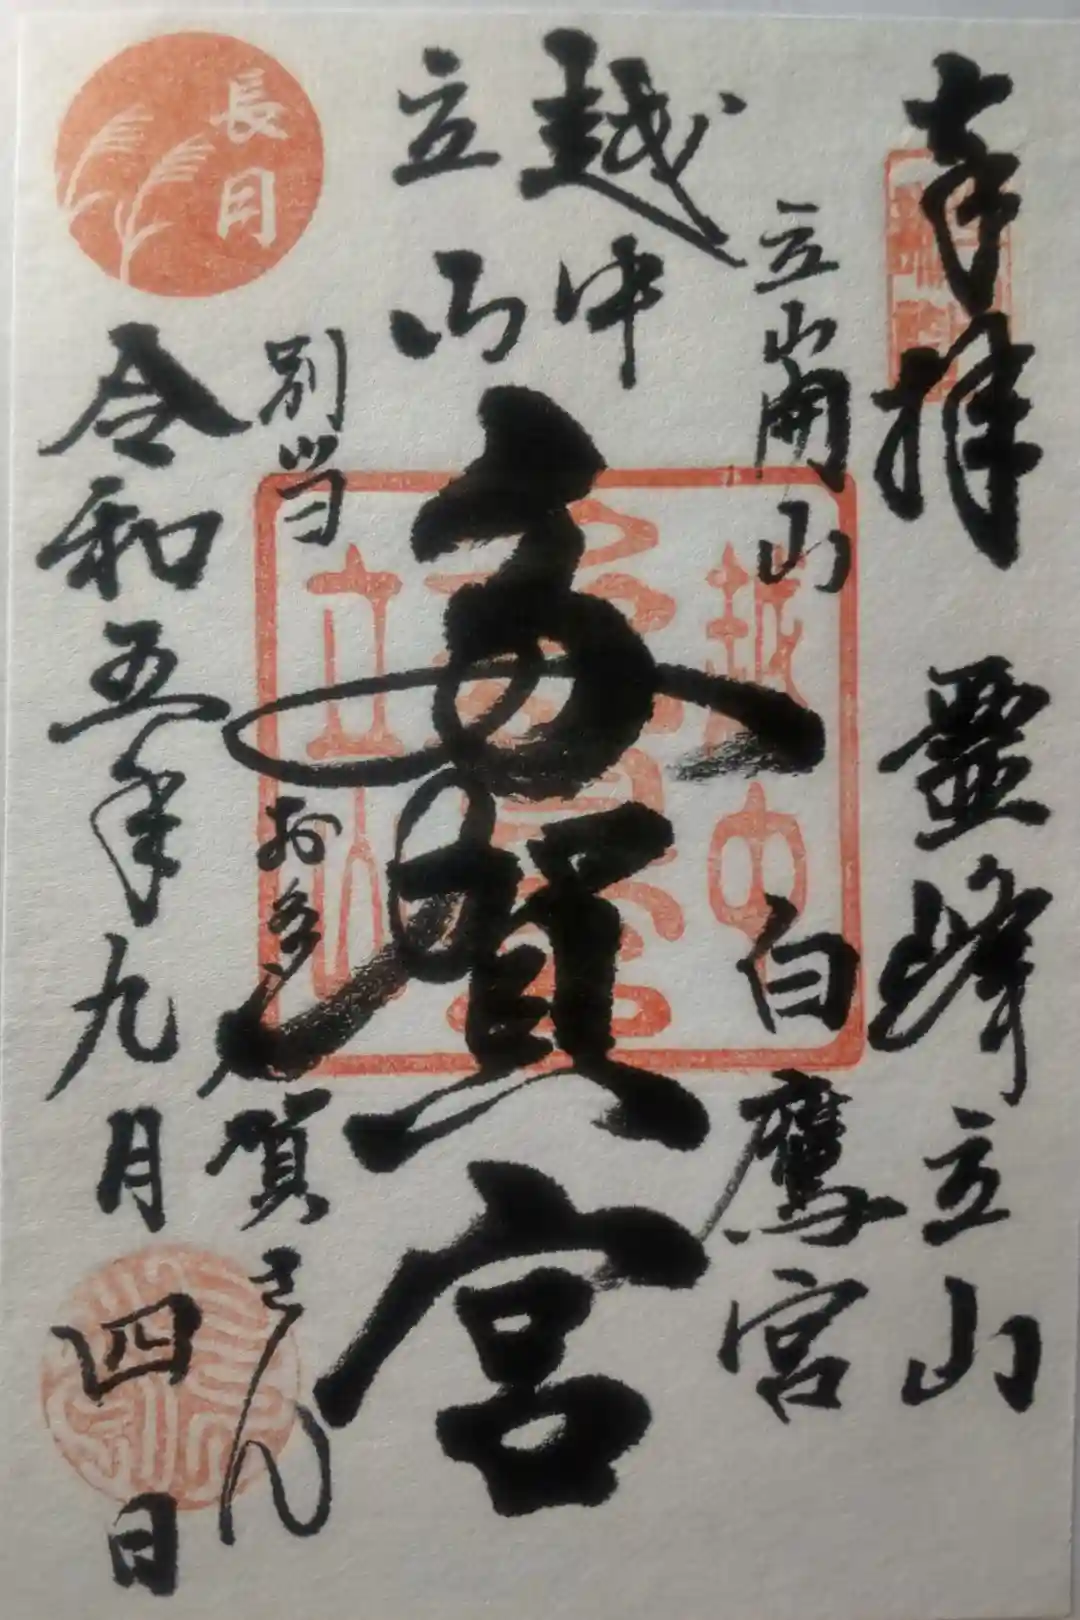 奉拝 霊峰立山
立山開山 白鷹宮
越中
立山
多賀宮
別当 お多賀さん
令和五年九月四日
長月
越中
立山